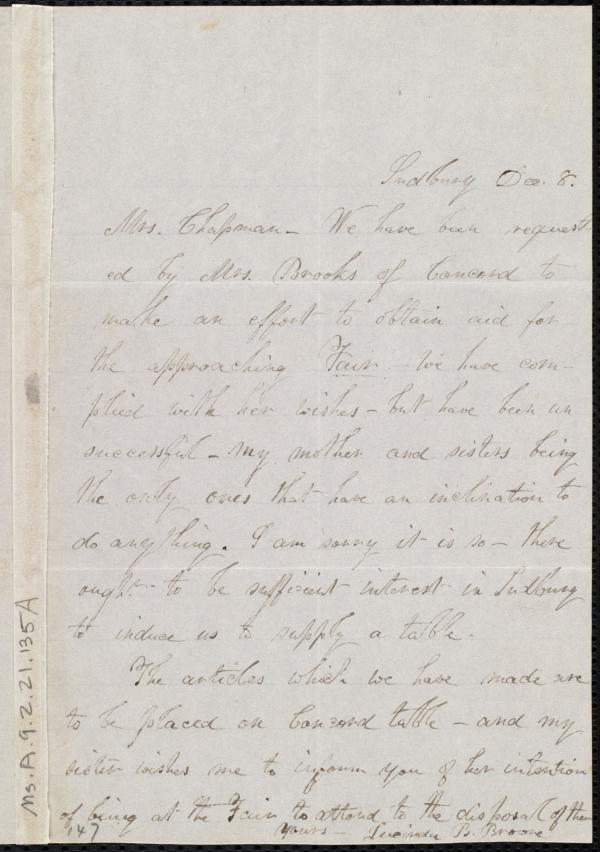 Sudbury Dec. 8.
Mrs. Chapman - We have been request-
ed by Mrs. Brooks of Concord to
make an effort to obtain aid for
the approaching Fair - We have com-
plied with her wishes - but have been un
successful - My mother and sisters being
the only ones that have an inclination to
do anything. I am sorry it is so - there
ought to be sufficient interest in Sudbury
to induce us to supply a table.
The articles which we have made are
to be placed on Concord table - and my
sister wishes me to inform you of her intention
of being at the Fair to attend to the disposal of them
Yours - Lucinda B.
147
Ms. A. 9. 2. 21. 135A